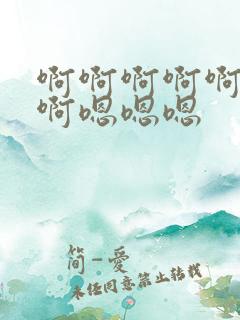 啊啊啊啊啊
啊嗯嗯嗯
简-爱
未经同意禁止转载